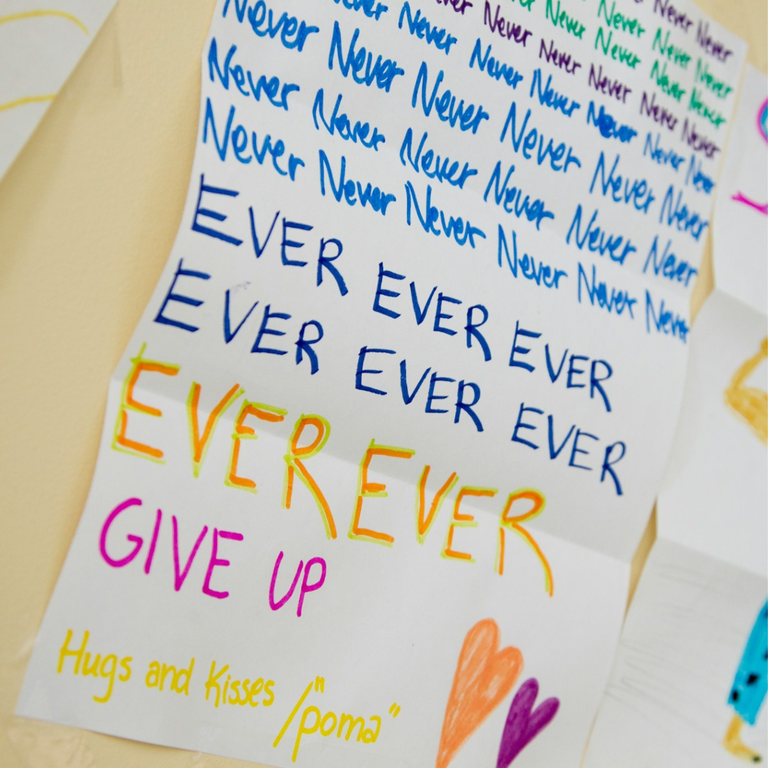 Never Never
Never Never Never
Never Never Never Never Never
Never Never Never Never Never
Never Never Never Never Never Never
Never Never Never Never Never Never
Never Never Never Never Never Never
Never Never Never Never Never Never
EVER EVER EVER
EVER EVER EVER
EVER EVER
GIVE UP
Hugs and Kisses /"poma"